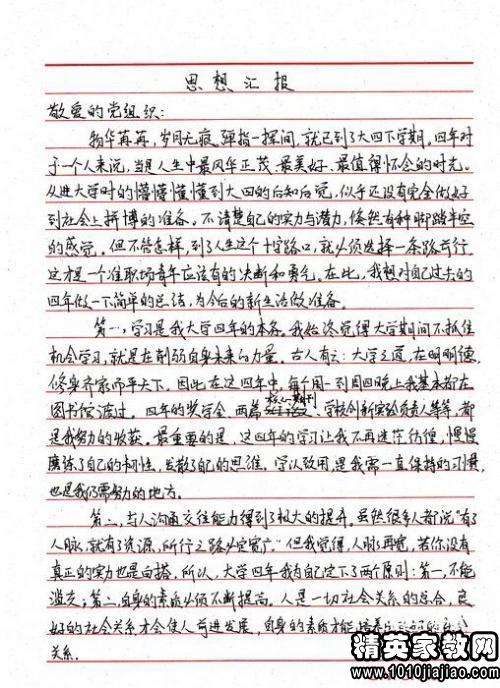 思想汇报
敬爱的党组织：
物华苒苒，岁月无痕，弹指一挥间，就已到了大四下学期。四年对
于一个人来说，当是人生中最风华正茂、最美好、最值得怀念的时光。
从进大学时的懵懵懂懂到大四的后知后觉，似乎还没有完全做好
到社会上拼搏的准备。不清楚自己的实力与潜力，倏然有种脚踏半空
的感觉。但不管怎样，到了人生这个十字路口，就必须选择一条路前行，
这才是一个准职场青年应该有的决断和勇气。在此，我想对自己过去的
四年做一下简单的总结，为今后的新生活做准备。
第一，学习是我大学四年的本务。我始终觉得大学期间不抓住
机会学习，就是在削弱自身未来的力量。古人有云：大学之道，在明明德，
修身齐家而平天下。因此在这四年中，每个周一到周四晚上我基本都在
图书馆渡过。四年的奖学金、两篇核心期刊、学校创新实验负责人等等，都
是我努力的收获。最重要的是，这四年的学习让我不再迷茫彷徨，慢慢
磨练了自己的韧性，发散了自己的思维。学以致用，是我需一直保持的习惯，
也是我仍需努力的地方。
第二，与人沟通交往能力得到了极大的提升。虽然很多人都说“有了
人脉，就有了资源，所行之路必定宽广。”但我觉得，人脉再宽，若你没有
真正的实力也是白搭。所以，大学四年我为自己定下了两个原则：第一，不能
滥交；第二，自身的素质必须不断提高。人是一切社会关系的总合，良
好的社会关系才会使人前进发展，自身的素质才能培养
关系。
精英家教网
www.1010jiajiao.com